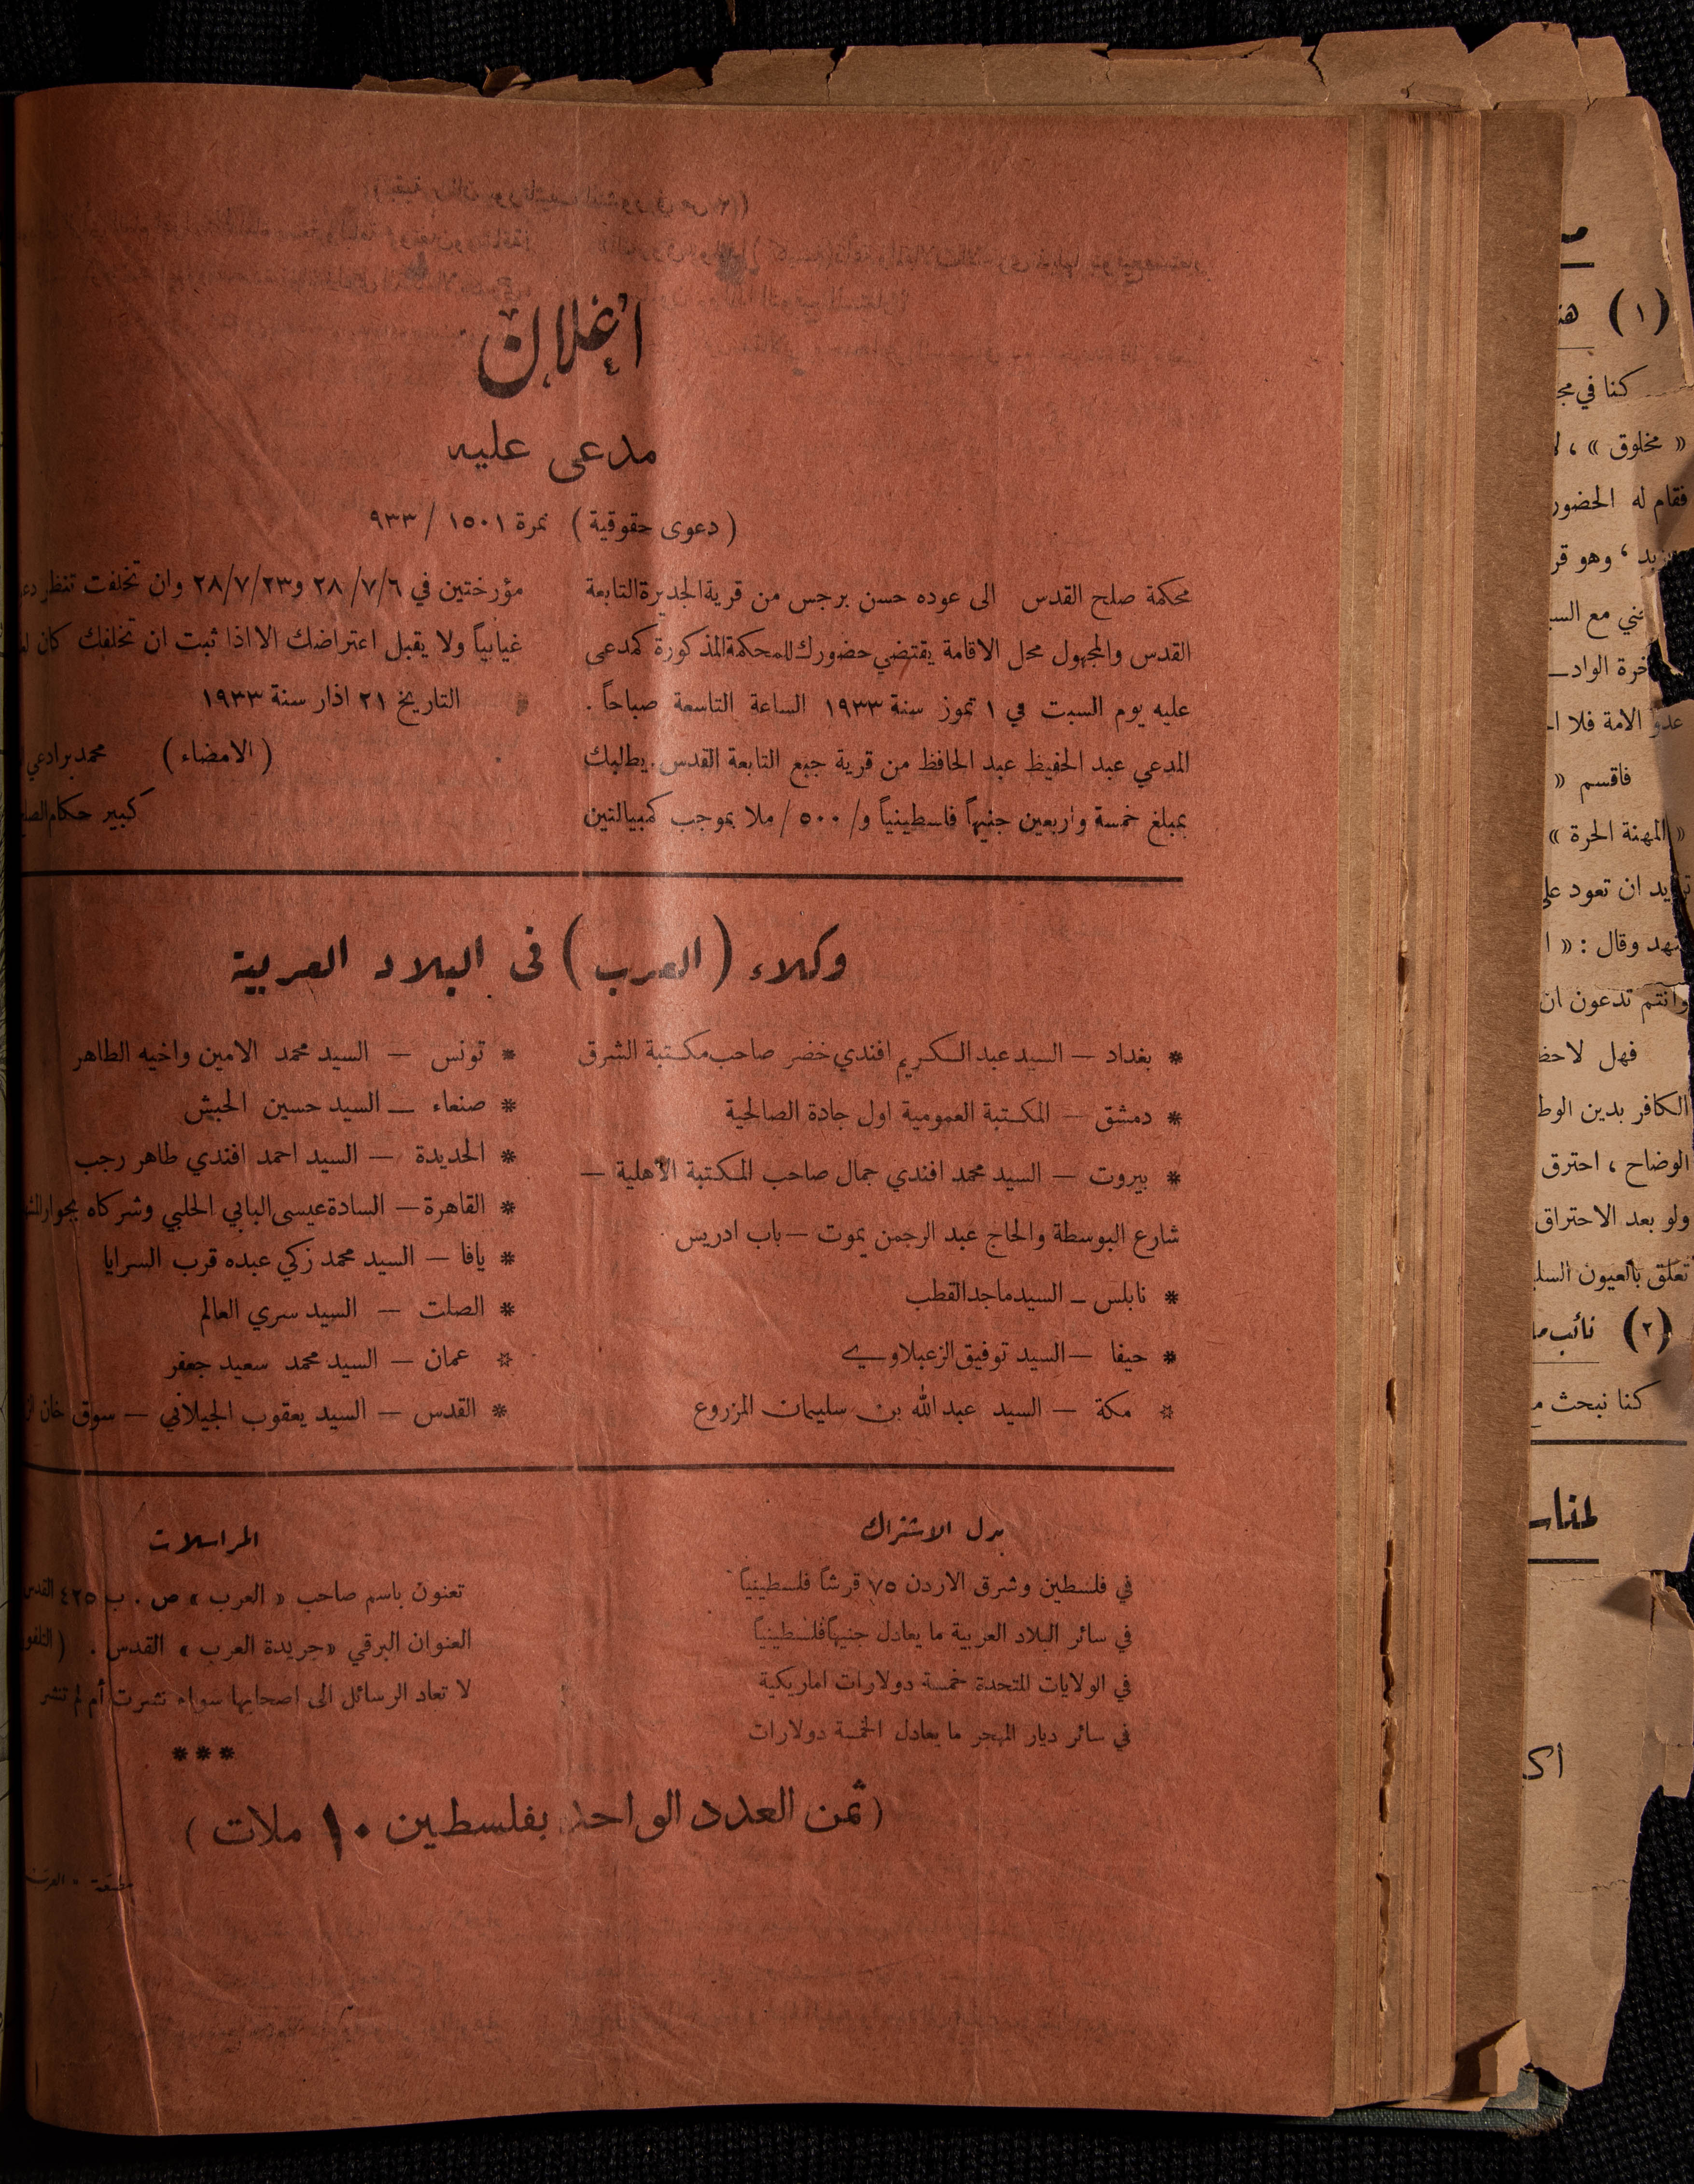 اعلان
مدعى عليه
(دعوى حقوقية) نمرة ١٥٠١ / ٩٣٣
محكمة صلح القدس الى عوده حسن برجس من قرية الجديرة التابعة
القدس والمجهول محل الاقامة يقتضي حضورك للمحكمة المذكورة كمدعى
عليه يوم السبت في ١ تموز سنة ١٩٣٣ الساعة التاسعة صباحاً .
المدعي عبد الحفيظ عبد الحافظ من قرية جبع التابعة القدس . يطالبك
بمبلغ خمسة واربعين جنيهاً فلسطينياً و/ ٥٠٠ / ملا بموجب كمبيالتين
مؤرختين في ٢٨/٧/٦ و٢٨/٧/٢٣ وان تخلفت تنظر
غيابياً ولا يقبل اعتراضك الا اذا ثبت ان تخلفك كان
التاريخ ٢١ اذار سنة ١٩٣٣
(الامضاء) محمد برادعي
كبير حكام
وكلاء (العرب) فى البلاد العربية
* بغداد — السيد عبد الكريم افندي خضر صاحب مكتبة الشرق
* دمشق — المكتبة العمومية اول جادة الصالحية
* بيروت — السيد محمد افندي جمال صاحب المكتبة الاهلية —
شارع البوسطة والحاج عبد الرحمن يموت — باب ادريس
* نابلس — السيد ماجد القطب
* حيفا — السيد توفيق الزعبلاوي
* مكة — السيد عبد الله بن سليمان المزروع
* تونس — السيد محمد الامين واخيه الطاهر
* صنعاء — السيد حسين الحبش
* الحديدة — السيد احمد افندي طاهر رجب
* القاهرة — السادة عيسى البابي الحلبي وشركاه بجوار
* يافا — السيد محمد زكي عبده قرب السرايا
* الصلت — السيد سري العالم
* عمان — السيد محمد سعيد جعفر
* القدس — السيد يعقوب الجيلاني — سوق خان
بدل الاشتراك
في فلسطين وشرق الاردن ٧٥ قرشاً فلسطينياً
في سائر البلاد العربية ما يعادل جنيهاً فلسطينياً
في الولايات المتحدة خمسة دولارات اماريكية
في سائر ديار المهجر ما يعادل الخمسة دولارات
المراسلات
تعنون باسم صاحب « العرب » ص . ب ٤٢٥ القدس
العنوان البرقي « جريدة العرب » القدس .
لا تعاد الرسائل الى اصحابها سواء نشرت أم لم تنشر
***
(ثمن العدد الواحد بفلسطين ١٠ ملات)
مطبعة « العرب
(١)
كنا في
« مخلوق » ،
فقام له الحضور
وهو
مع
عدو الامة فلا
فاقسم «
« المهنة الحرة »
ان تعود
وقال : «
وانتم تدعون ان
فهل
الكافر بدين
الوضاح ، احترق
ولو بعد الاحتراق
تعلق بالعيون
(٢) نائب
كنا نبحث